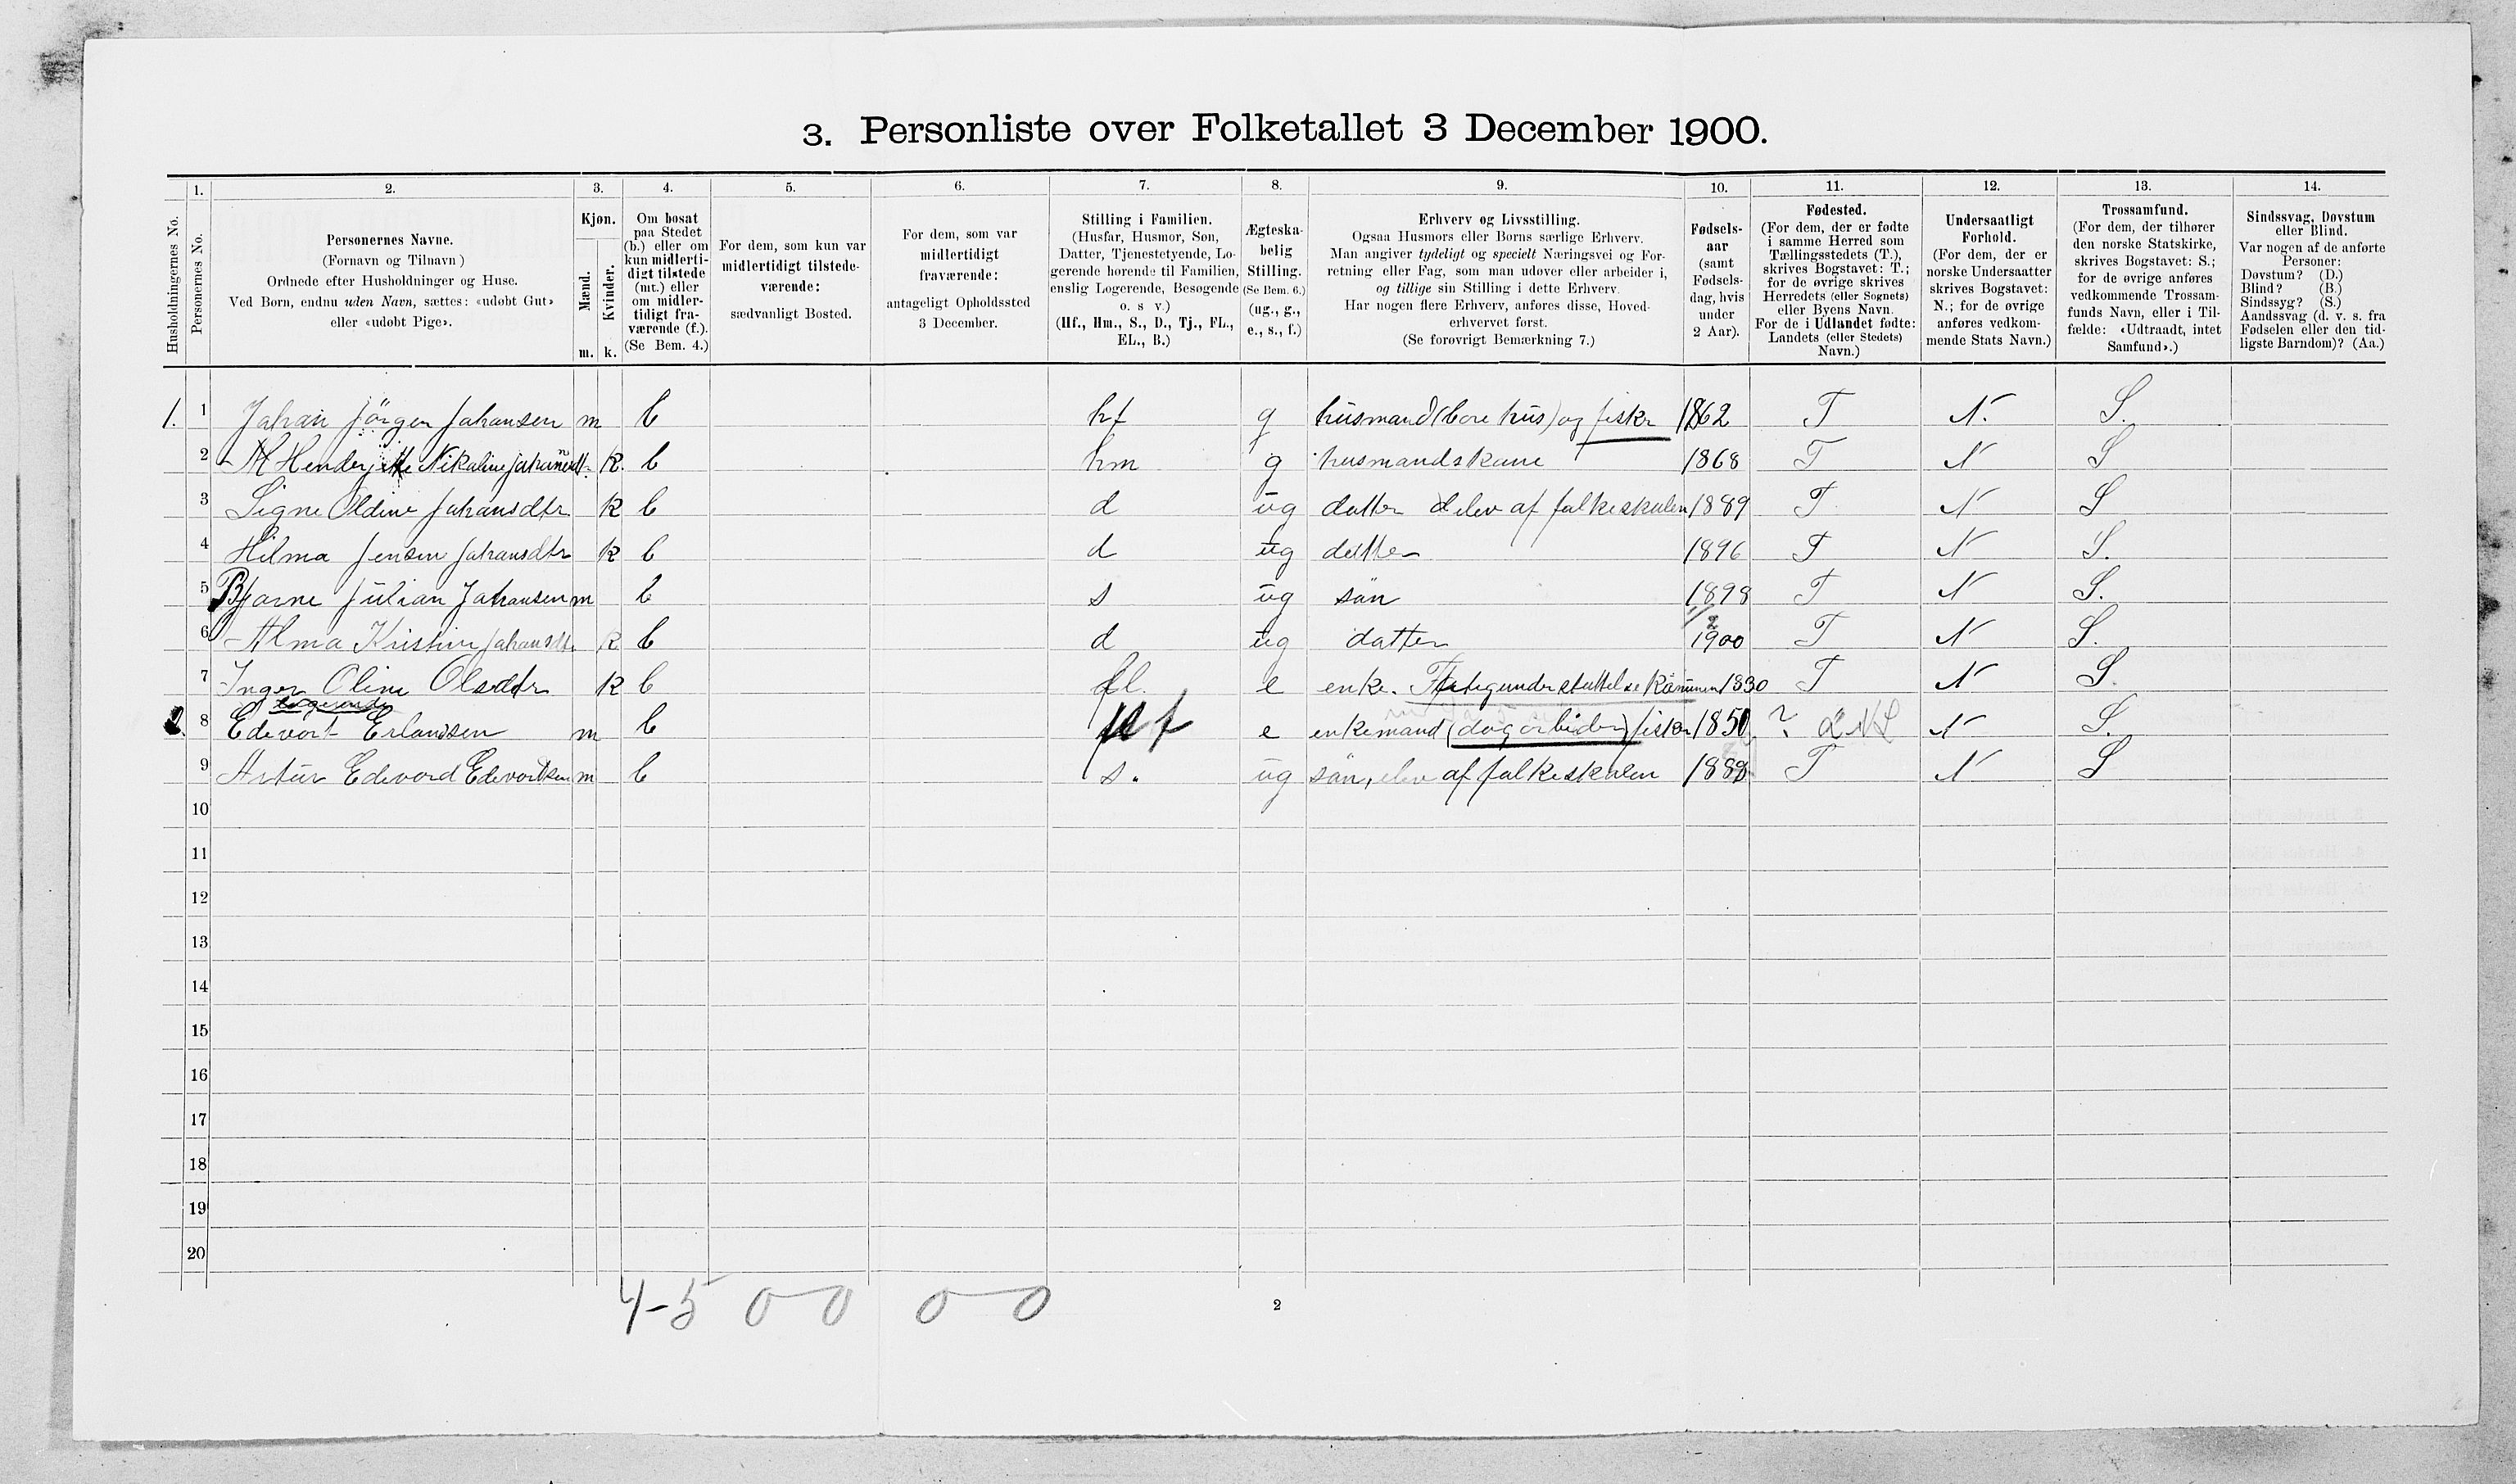 3. Personliste over Folketallet 3 December 1900.
1. 2. 3. 4. 5. 6. 7. 8. 9. 10. 11. 12. 13. 14.
Husholdningernes No.
Personernes No.
Personernes Navne.
(Fornavn og Tilnavn)
Ordnede efter Husholdninger og Huse.
Ved Børn, endnu uden Navn, sættes: «udøbt Gut»
eller «udøbt Pige».
Kjøn.
Mænd.
Kvinder.
m. k.
Om bosat
paa Stedet
(b.) eller om
kun midlerti-
digt tilstede
(mt.) eller
om midler-
tidigt fra-
værende (f.).
(Se Bem. 4.)
For dem, som kun var
midlertidigt tilstede-
værende:
sædvanligt Bosted.
For dem, som var
midlertidigt
fraværende:
antageligt Opholdssted
3 December.
Stilling i Familien.
(Husfar, Husmor, Søn,
Datter, Tjenestetyende, Lo-
gerende hørende til Familien,
enslig Logerende, Besøgende
o. s v.)
(Hf., Hm., S., D., Tj., FL.,
EL., B.)
Ægteska-
belig
Stilling.
(Se Bem. 6.)
(ug., g.,
e., s., f.)
Erhverv og Livsstilling.
Ogsaa Husmors eller Børns særlige Erhverv.
Man angiver tydeligt og specielt Næringsvei og For-
retning eller Fag, som man udøver eller arbeider i,
og tillige sin Stilling i dette Erhverv.
Har nogen flere Erhverv, anføres disse, Hoved-
erhvervet først.
(Se forøvrigt Bemærkning 7.)
Fødsels-
aar
(samt
Fødsels-
dag, hvis
under
2 Aar).
Fødested.
(For dem, der er fødte
i samme Herred som
Tællingsstedets (T.),
skrives Bogstavet: T.;
for de øvrige skrives
Herredets (eller Sognets)
eller Byens Navn.
For de i Udlandet fødte:
Landets (eller Stedets)
Navn.)
Undersaatligt
Forhold.
(For dem, der er
norske Undersaatter
skrives Bogstavet:
N.; for de øvrige
anføres vedkom-
mende Stats Navn.)
Trossamfund.
(For dem, der tilhører
den norske Statskirke,
skrives Bogstavet: S.;
for de øvrige anføres
vedkommende Trossam-
funds Navn, eller i Til-
fælde: «Udtraadt, intet
Samfund».)
Sindssvag, Døvstum
eller Blind.
Var nogen af de anførte
Personer:
Døvstum? (D.)
Blind? (B.)
Sindssyg? (S.)
Aandssvag (d. v. s. fra
Fødselen eller den tid-
ligste Barndom)? (Aa.)
1. 1 Johan Jörgen Johansen m b hf g husmand (bare hus) og fisker 1862 T N. S.
2 Nikoline k. b hm g husmandskone 1868 T N S
3 Signe Oldine Johansdtr k b d ug datter elev af folkeskolen 1889 T N S
4 Hilma Jensen Johansdtr k b d ug datter 1896 T N S.
5 Bjarne Julian Johansen m b s ug sön 1898 T N S.
6 Alma Kristine Johansdtr k b d ug datter 1900 T N S.
7 Inger Oline Olsdtr k b fl. e enke. 1830 T N S.
logerende
2. 8 Edevart Erlandsen m b hf e enkemand (dagarbeider) fisker 1850 ? N S.
9 Artur Edevard Edevartsen m b s. ug sön, elev af folkeskolen 1888 T N S
10
11
12
13
14
15
16
17
18
19
20
4-5 0-0 0-0
2